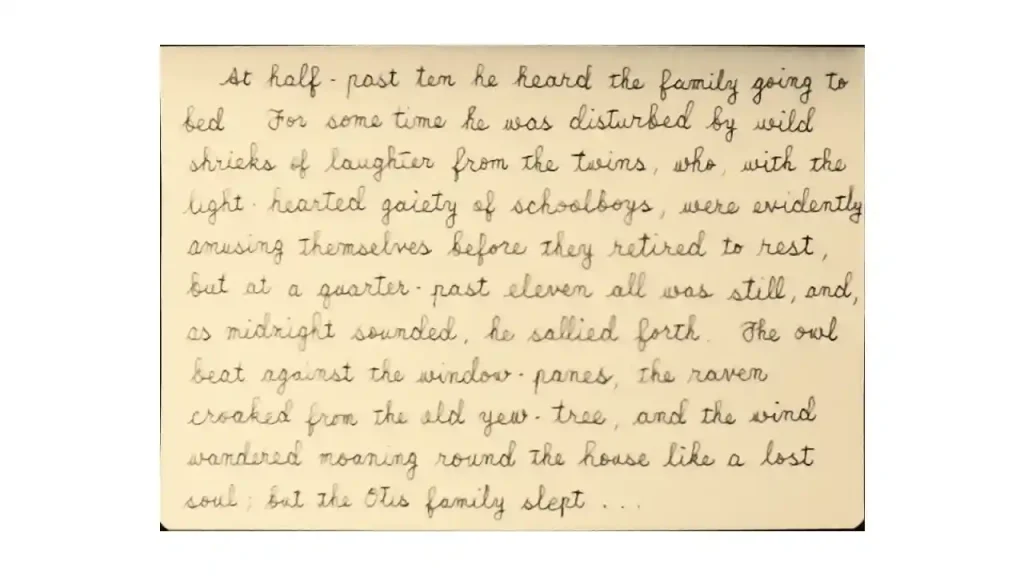 At half-past ten he heard the family going to
bed For some time he was disturbed by wild
shrieks of laughter from the twins, who, with the
light-hearted gaiety of schoolboys, were evidently
amusing themselves before they retired to rest,
but at a quarter-past eleven all was still, and,
as midnight sounded, he sallied forth. The owl
beat against the window-panes, the raven
croaked from the old yew-tree, and the wind
wandered moaning round the house like a lost
soul; but the Otis family slept ...